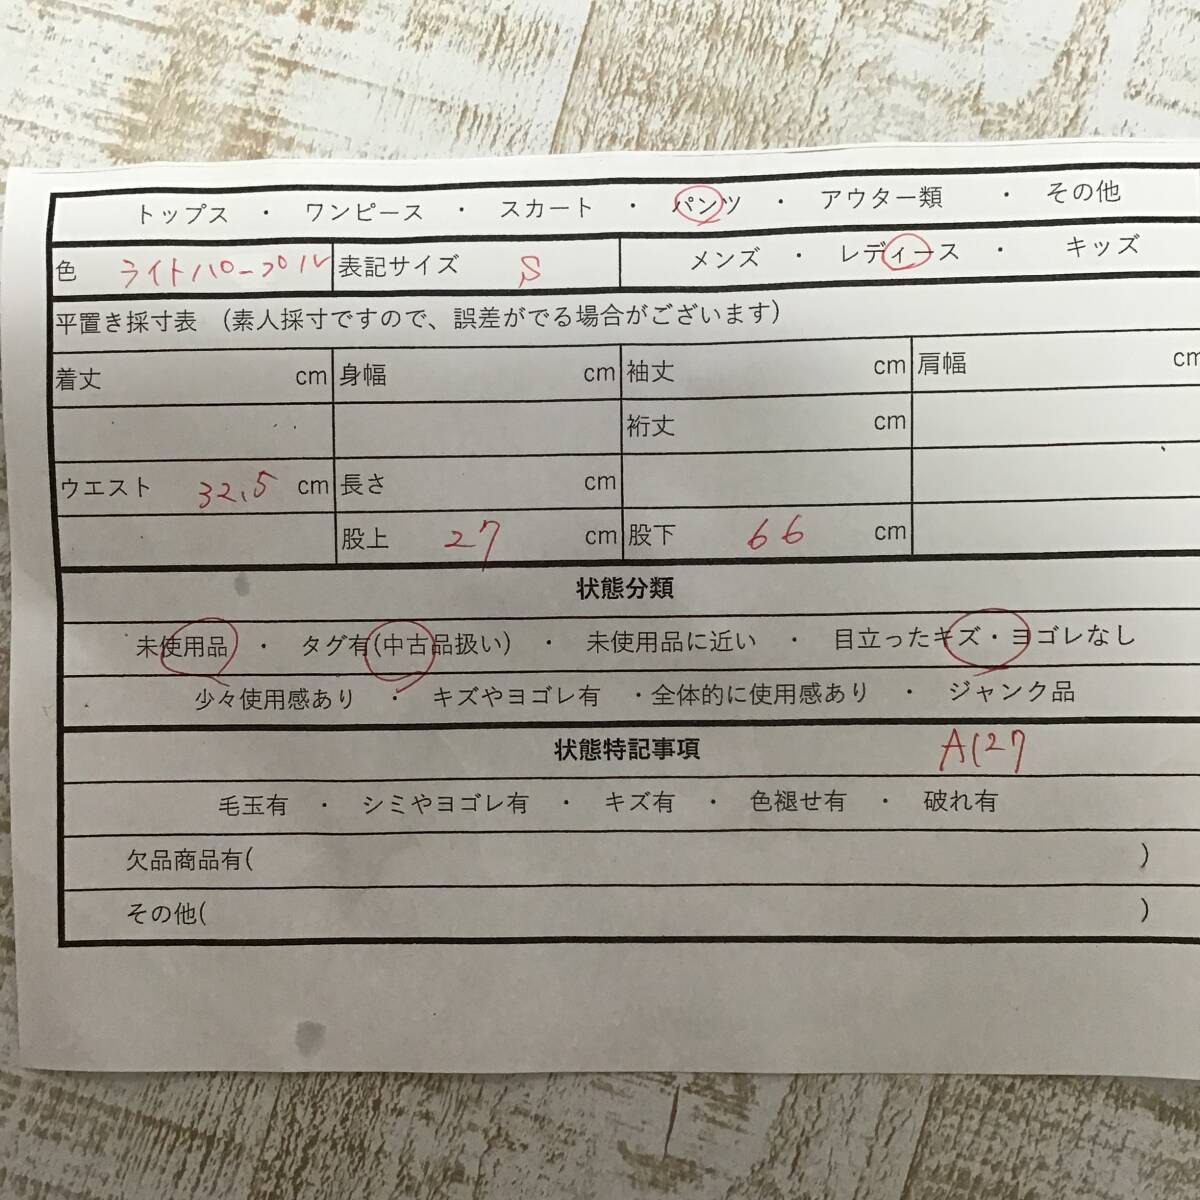 トップス ・ ワンピース ・ スカート ・ パンツ ・ アウター類 ・ その他
色 ライトパープル 表記サイズ S メンズ ・ レディース ・ キッズ
平置き採寸表 (素人採寸ですので、誤差がでる場合がございます)
着丈 cm 身幅 cm 袖丈 cm 肩幅 cm
裄丈 cm
ウエスト 32.5 cm 長さ cm
股上 27 cm 股下 66 cm
状態分類
未使用品 ・ タグ有(中古品扱い) ・ 未使用品に近い ・ 目立ったキズ・ヨゴレなし
少々使用感あり ・ キズやヨゴレ有 ・全体的に使用感あり ・ ジャンク品
状態特記事項 A127
毛玉有 ・ シミやヨゴレ有 ・ キズ有 ・ 色褪せ有 ・ 破れ有
欠品商品有( )
その他( )